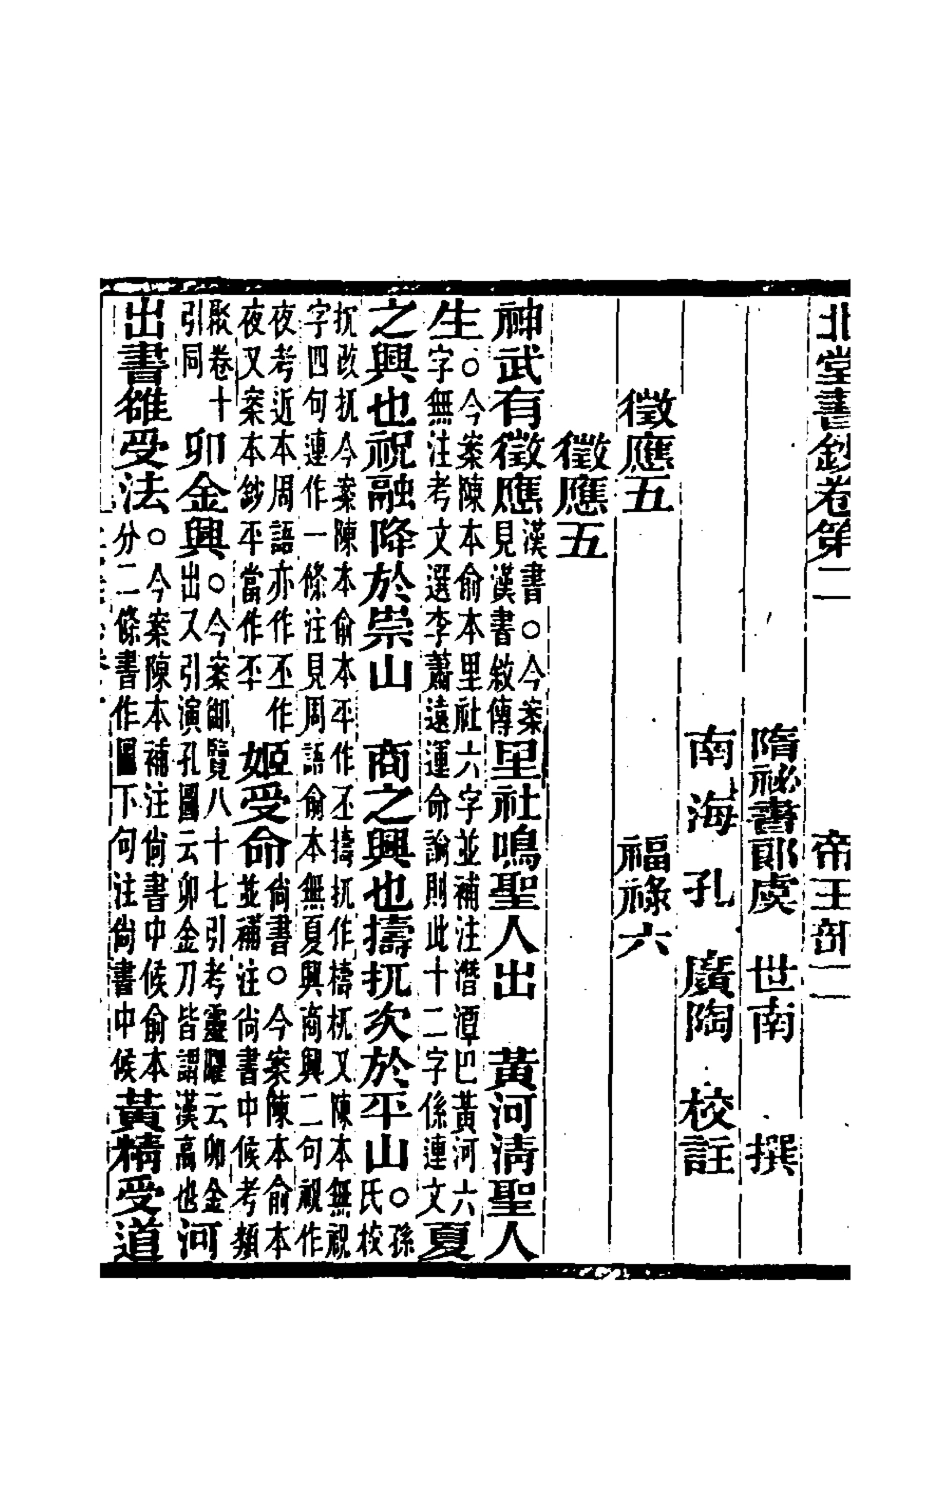 北堂書鈔卷第二 帝王部二
隋祕書郎虞 世南 撰
南海孔 廣陶 校註
徵應五 福祿六
徵應五
神武有徵應漢書○今案見漢書敘傳里社鳴聖人出 黃河淸聖人
生○今案陳本俞本里社六字並補注潛潭巴黃河六字無注考文選李蕭遠運命論則此十二字係連文夏
之興也祝融降於崇山 商之興也擣扤次於平山○孫氏校
扤改扤今案陳本俞本平作丕擣扤作檮杌又陳本無祝字四句連作一條注見周語俞本無夏興商興二句祝作
夜考近本周語亦作丕作夜又案本鈔平當作丕 姬受命尙書○今案陳本俞本並補注尙書中候考類
聚卷十引同 卯金興○今案御覽八十七引考靈躍云卯金出又引演孔圖云卯金刀皆謂漢高也河
出書雒受法○今案陳本補注尙書中候俞本分二條書作圖下句注尙書中候黃精受道